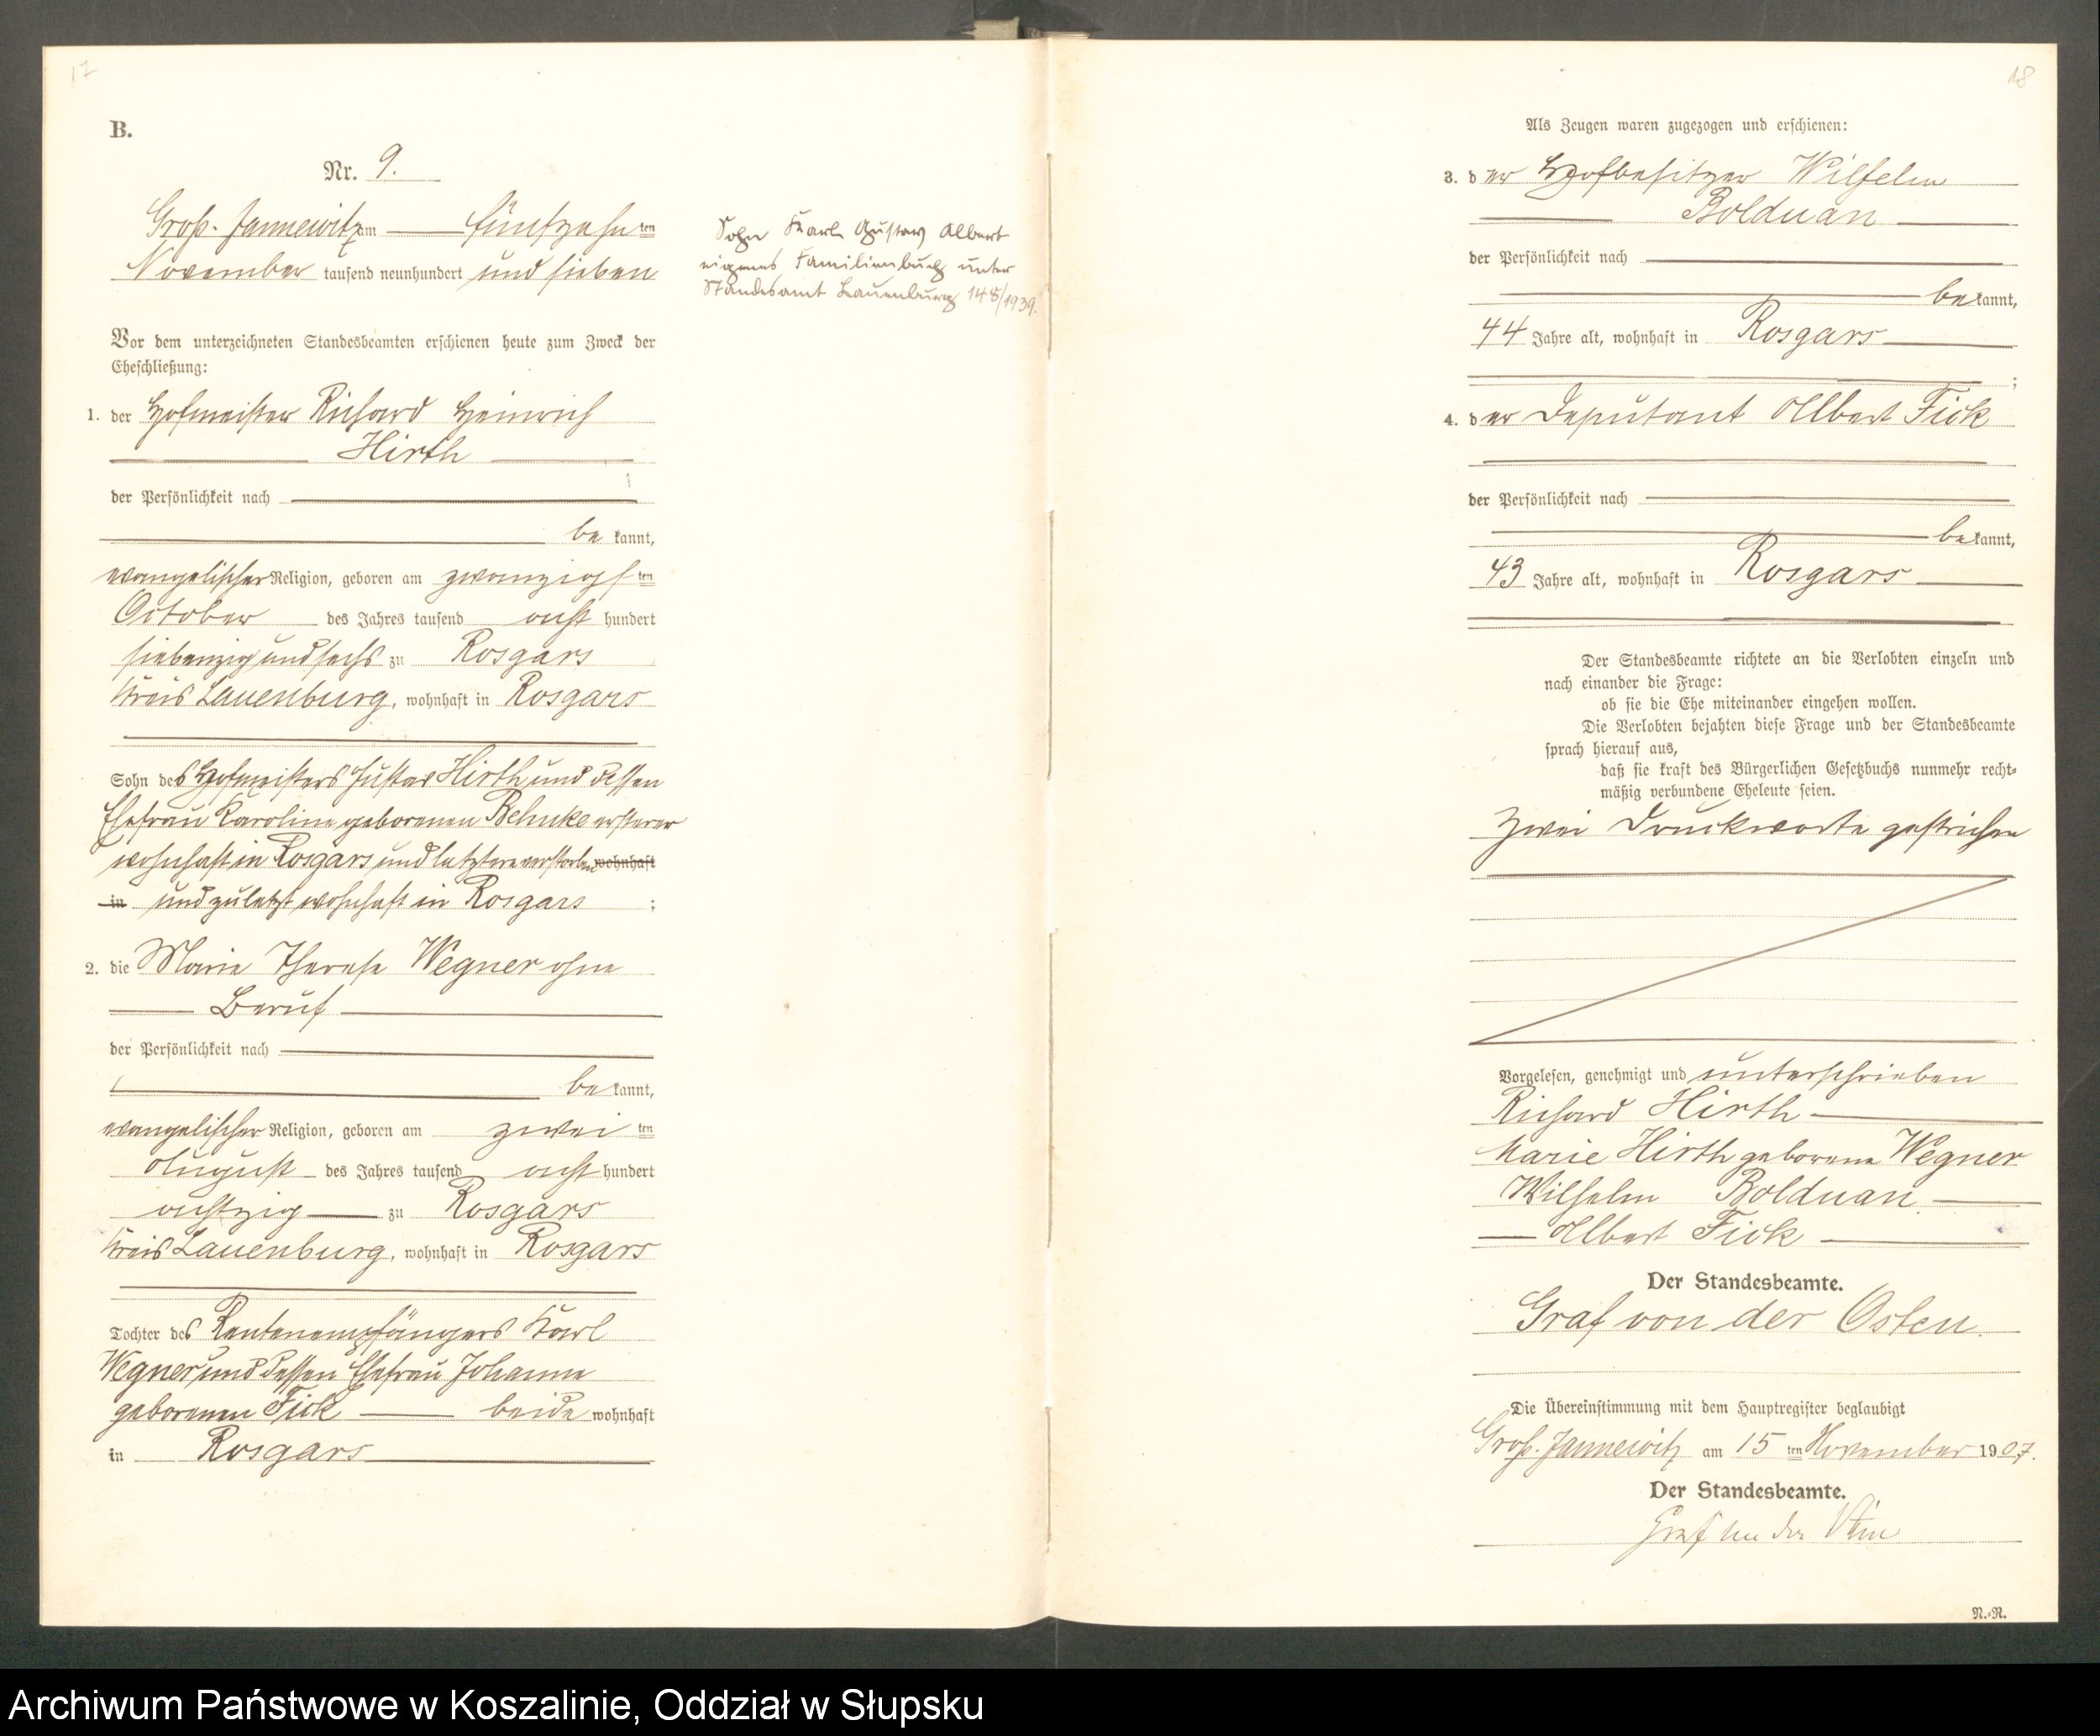 17
B.
Nr. 9.
Groß-Jannewitz am fünfzehnten
November tausend neunhundert und sieben
Sohn Karl Gustav Albert
eigenes Familienbuch unter
Standesamt Lauenburg 148/1939.
Vor dem unterzeichneten Standesbeamten erschienen heute zum Zweck der
Eheschließung:
1. der Hofmeister Richard Heinrich
Hirth
der Persönlichkeit nach
bekannt,
evangelischer Religion, geboren am zwanzigsten
October des Jahres tausend acht hundert
siebenzig und sechs zu Rosgars
Kreis Lauenburg, wohnhaft in Rosgars
Sohn des Hofmeisters Gustav Hirth und dessen
Ehefrau Karoline geborenen Behnke ersterer
wohnhaft in Rosgars und letztere verstorben wohnhaft
in und zuletzt wohnhaft in Rosgars ;
2. die Marie Therese Wegner ohne
Beruf
der Persönlichkeit nach
bekannt,
evangelischer Religion, geboren am zweiten
August des Jahres tausend acht hundert
achtzig zu Rosgars
Kreis Lauenburg, wohnhaft in Rosgars
Tochter des Rentenempfängers Karl
Wegner und dessen Ehefrau Johanne
geborenen Fick beide wohnhaft
in Rosgars
18
Als Zeugen waren zugezogen und erschienen:
3. der Hofbesitzer Wilhelm
Bolduan
der Persönlichkeit nach
bekannt,
44 Jahre alt, wohnhaft in Rosgars
;
4. der Deputant Albert Fick
der Persönlichkeit nach
bekannt,
43 Jahre alt, wohnhaft in Rosgars
Der Standesbeamte richtete an die Verlobten einzeln und
nach einander die Frage:
ob sie die Ehe miteinander eingehen wollen.
Die Verlobten bejahten diese Frage und der Standesbeamte
sprach hierauf aus,
daß sie kraft des Bürgerlichen Gesetzbuchs nunmehr recht-
mäßig verbundene Eheleute seien.
Zwei Druckworte gestrichen
Vorgelesen, genehmigt und unterschrieben
Richard Hirth
Marie Hirth geborene Wegner
Wilhelm Bolduan
Albert Fick
Der Standesbeamte.
Graf von der Osten.
Die Übereinstimmung mit dem Hauptregister beglaubigt
Groß-Jannewitz am 15ten November 1907.
Der Standesbeamte.
Graf von der Osten
N.-N.
Archiwum Państwowe w Koszalinie, Oddział w Słupsku